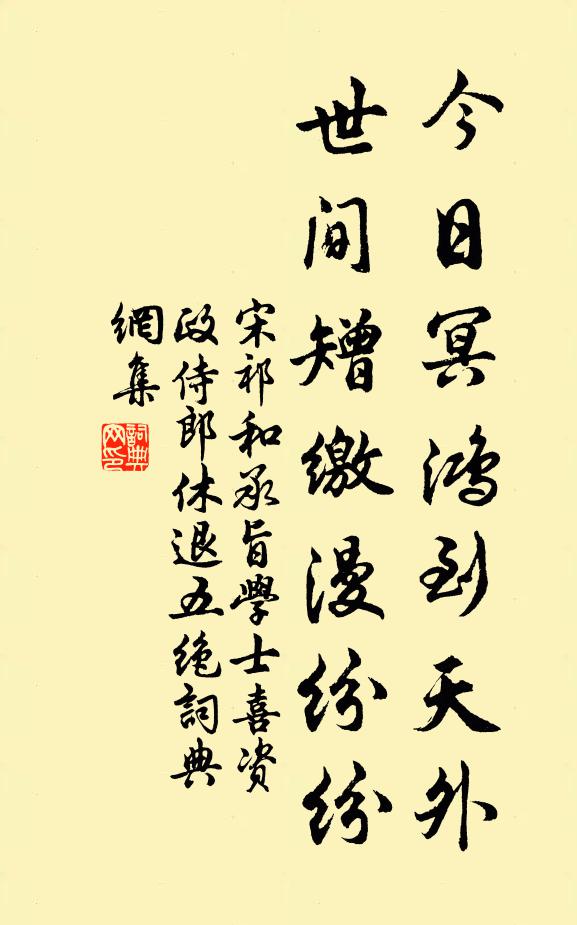 今日冥鸿到天外
世间矰缴漫纷纷
宋祁和承旨學士喜资
政侍郎休退五绝詞典
網集
詞典网印